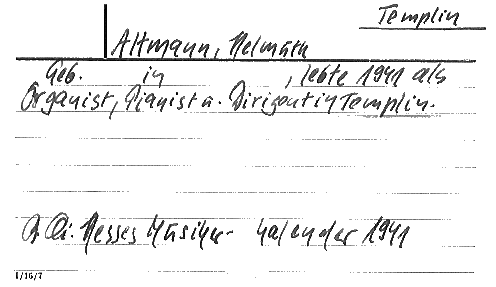 Templin
Altmann, Helmuth
Geb. in , lebte 1941 als
Organist, Pianist u. Dirigent in Templin.
Hesses Musiker- Kalender 1941
1/16/7